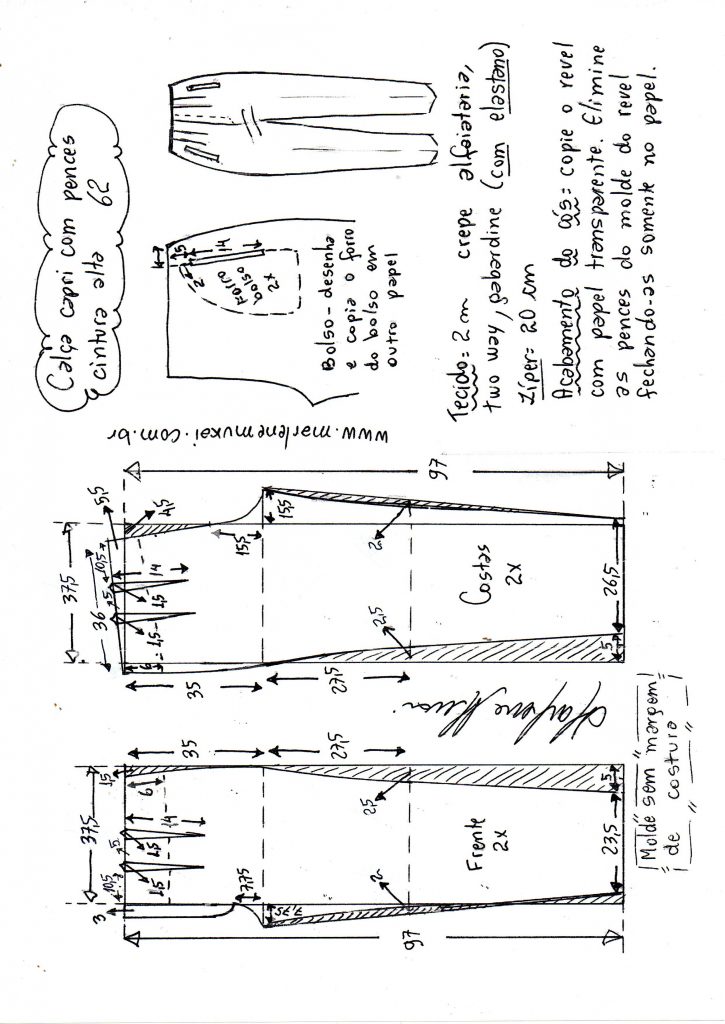 Calça capri com pences
e cintura alta 62
5
14
2,5
Forro
bolso
2x
Bolso - desenha
e copia o forro
do bolso em
outro papel
www.marlenemukai.com.br
Tecido = 2 m crepe alfaiataria,
two way, gabardine (com elastano)
zíper = 20 cm
Acabamento do cós = copie o revel
com papel transparente. Elimine
as pences do molde do revel
fechando-as somente no papel.
37,5
36
10,5
5,5
4,5
5
14
1,5
1,5
6
35
15,5
15,5
27,5
2
2,5
Costas
2x
26,5
5
97
37,5
3
10,5
5
14
1,5
1,5
6
1,5
35
7,75
7,75
27,5
2
2,5
Frente
2x
23,5
5
97
Molde sem margem
de costura